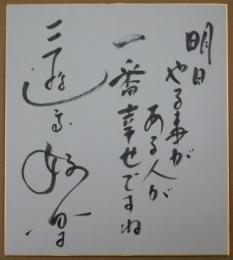 明日
やる事が
ある人が
一番幸せですね
三遊亭好楽